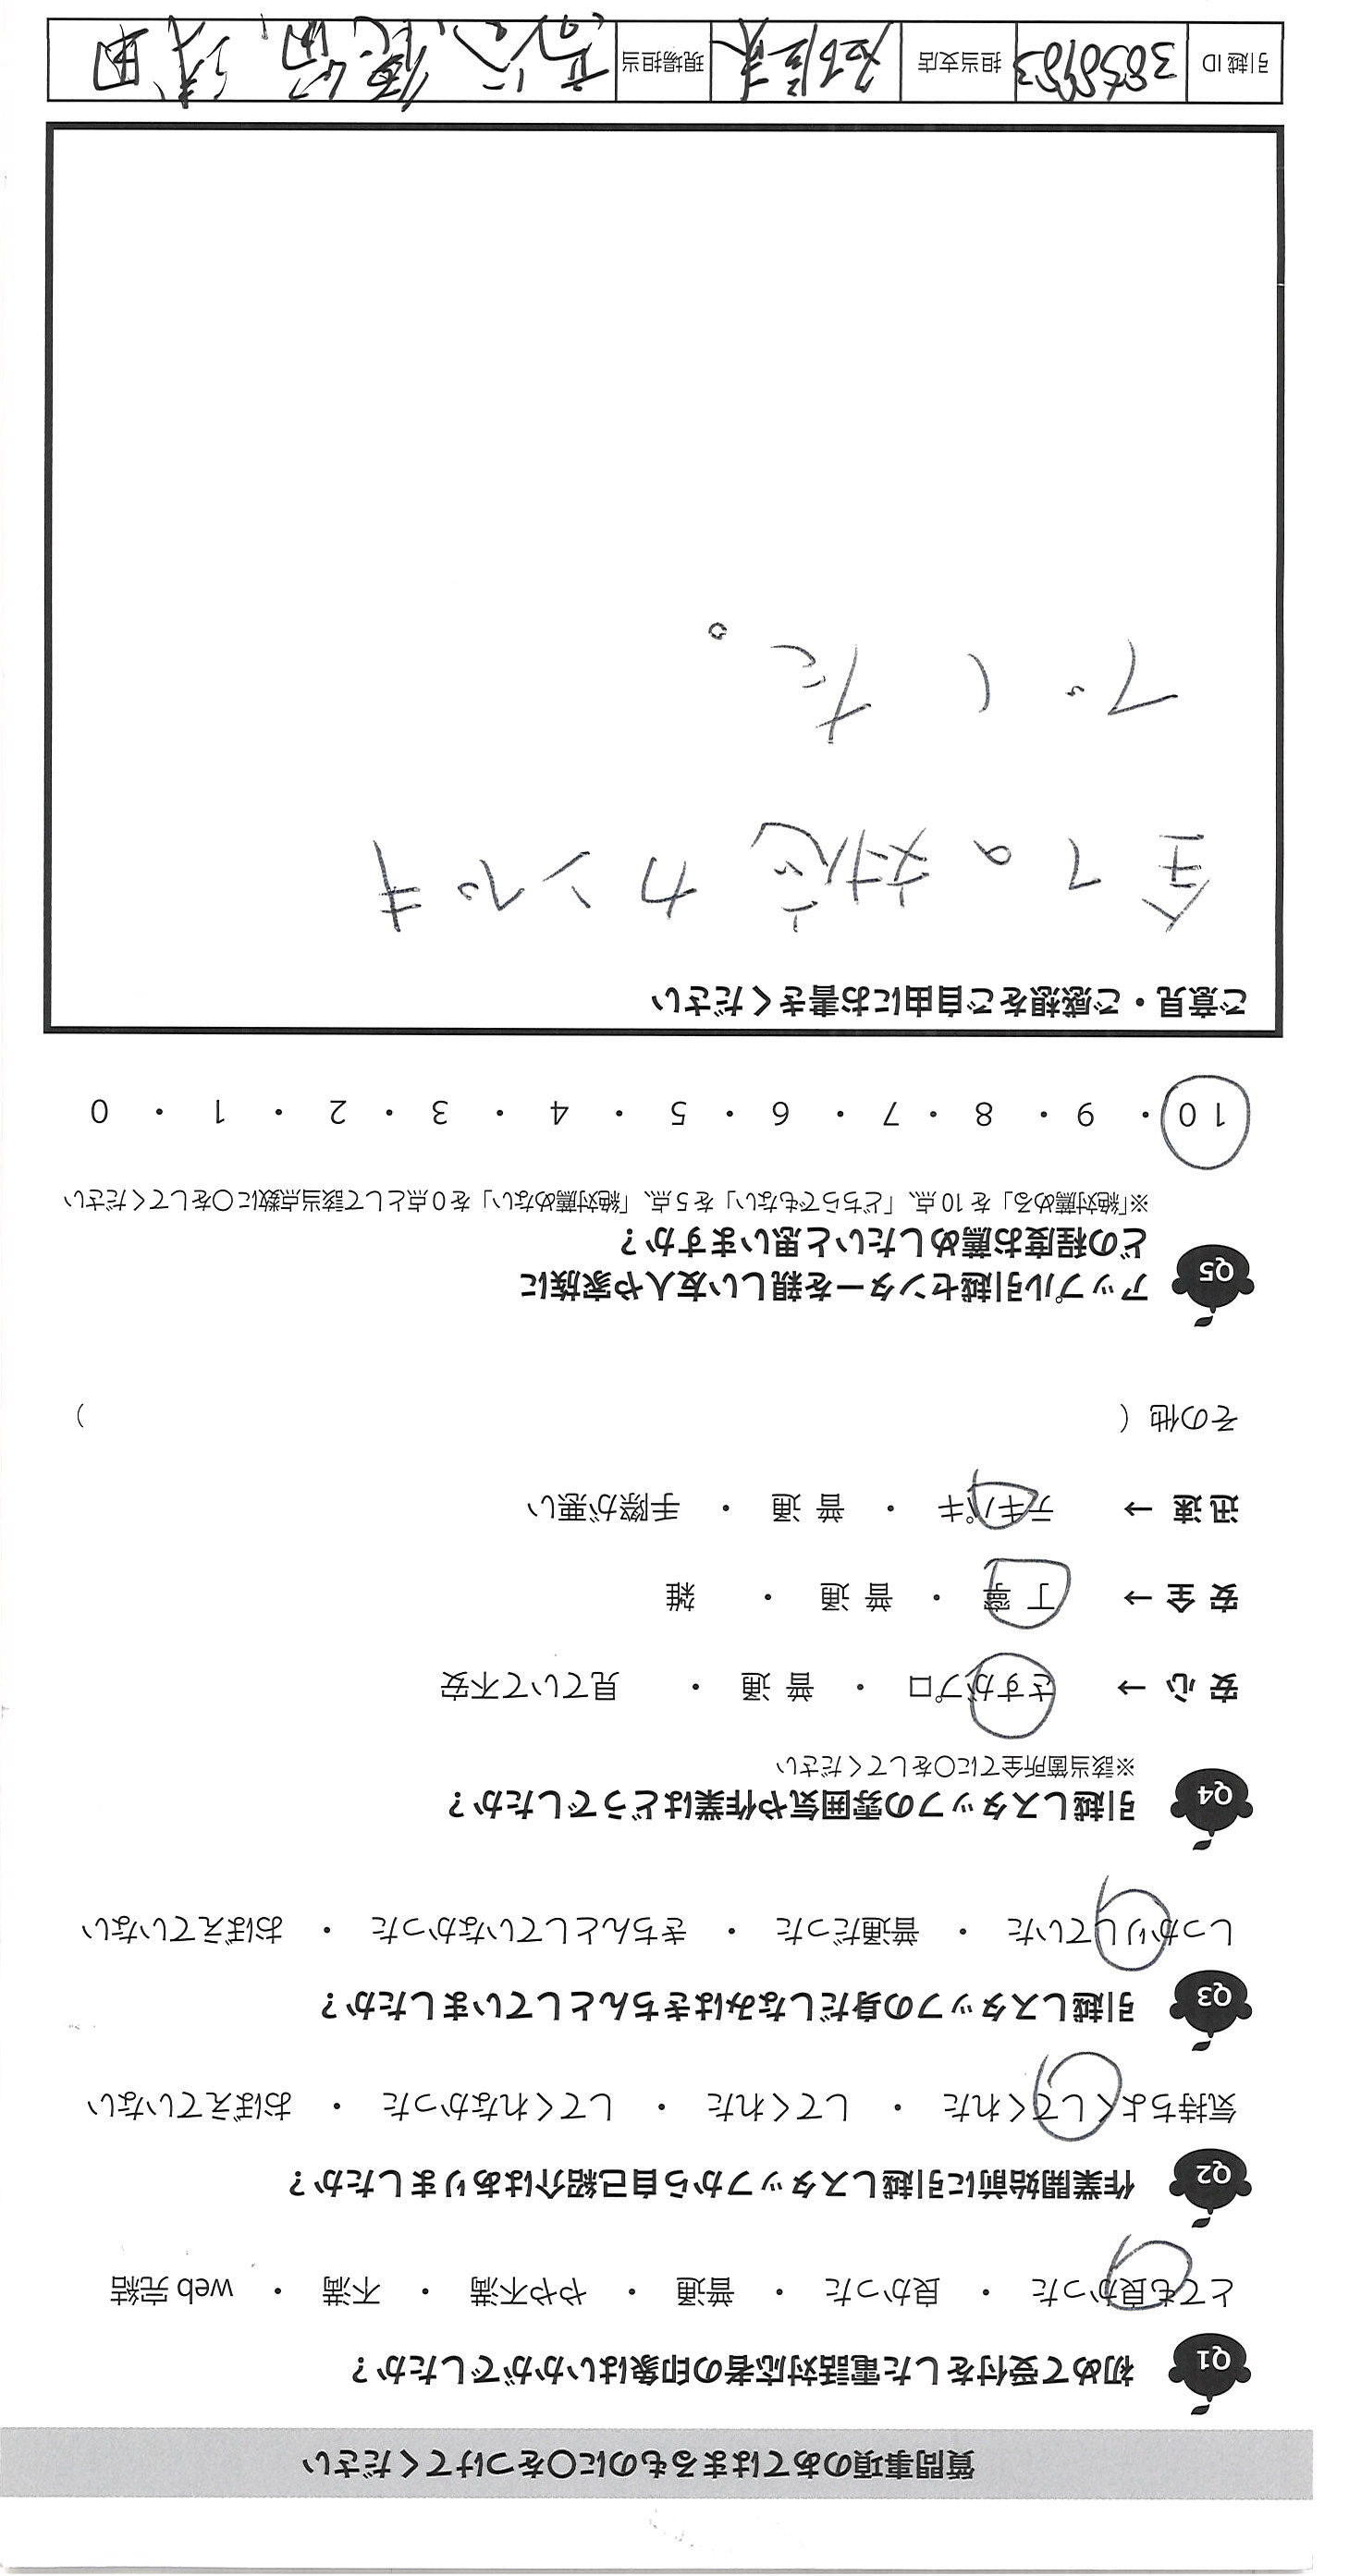 質問事項のあてはまるものに○をつけてください
Q1 初めて受付をした電話対応者の印象はいかがでしたか？
とても良かった ・ 良かった ・ 普通 ・ やや不満 ・ 不満 ・ web 完結
Q2 作業開始前に引越しスタッフから自己紹介はありましたか？
気持ちよくしてくれた ・ してくれた ・ してくれなかった ・ おぼえていない
Q3 引越しスタッフの身だしなみはきちんとしていましたか？
しっかりしていた ・ 普通だった ・ きちんとしていなかった ・ おぼえていない
Q4 引越しスタッフの雰囲気や作業はどうでしたか？
※該当箇所全てに○をしてください
安 心 → さすがプロ ・ 普 通 ・ 見ていて不安
安 全 → 丁 寧 ・ 普 通 ・ 雑
迅 速 → テキパキ ・ 普 通 ・ 手際が悪い
その他（ ）
Q5 アップル引越センターを親しい友人や家族に
どの程度お薦めしたいと思いますか？
※「絶対薦める」を 10 点、「どちらでもない」を 5 点、「絶対薦めない」を 0 点として該当点数に○をしてください
10 ・ 9 ・ 8 ・ 7 ・ 6 ・ 5 ・ 4 ・ 3 ・ 2 ・ 1 ・ 0
ご意見・ご感想をご自由にお書きください
全ての対応 カンペキ
でした。
引越 ID 担当支店 現場担当